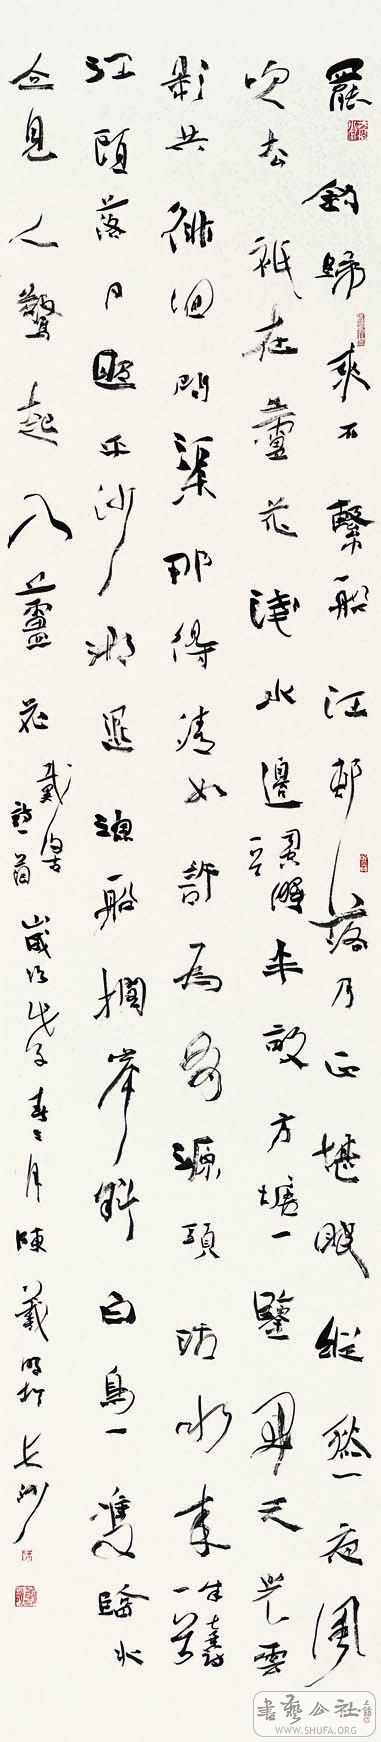 罷釣歸來不繫船江邨落月正堪眠縱然一夜風
吹去衹在蘆花淺水邊司空曙半畝方塘一鑒開天光雲
影共徘徊問渠那得清如許爲有源頭活水來朱熹詩一首
江頭落月照平沙潮退漁船擱岸斜白鳥一雙臨水
立見人驚起入蘆花
戴復古詩一首
歲次戊子春月陳羲明於長沙
書藝公社
WWW.SHUFA.ORG